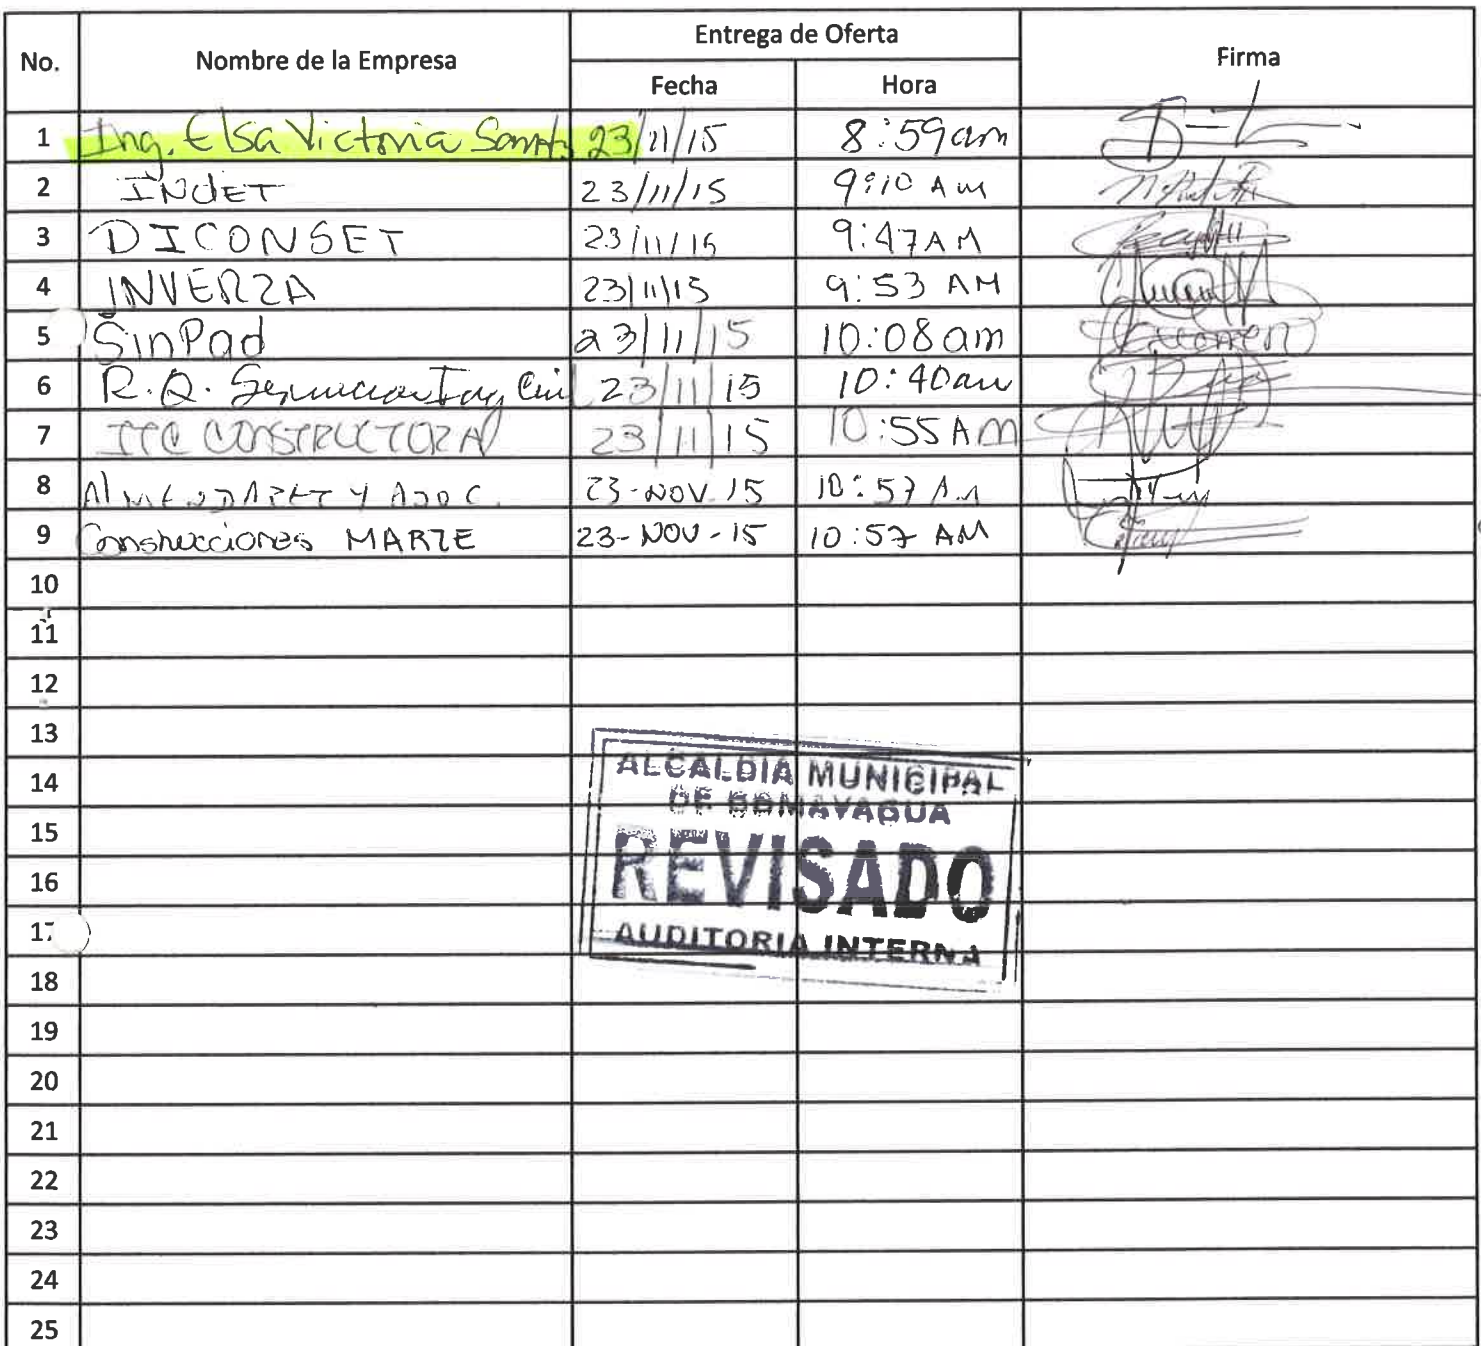 No. Nombre de la Empresa Entrega de Oferta Firma
Fecha Hora
1 Ing. Elsa Victoria 23/11/15 8:59am
2 INDET 23/11/15 9:10 AM
3 DICONSET 23/11/15 9:47AM
4 INVERZA 23/11/15 9:53 AM
5 SinPad 23/11/15 10:08am
6 R.Q. 23/11/15 10:40am
7 ITC CONSTRUCTORA 23/11/15 10:55AM
8 Y ASOC. 23-NOV-15 10:57 AM
9 Construcciones MARTE 23-NOV-15 10:57 AM
10
11
12
13
14
15
16
17
18
19
20
21
22
23
24
25
ALCALDIA MUNICIPAL
DE COMAYAGUA
REVISADO
AUDITORIA INTERNA